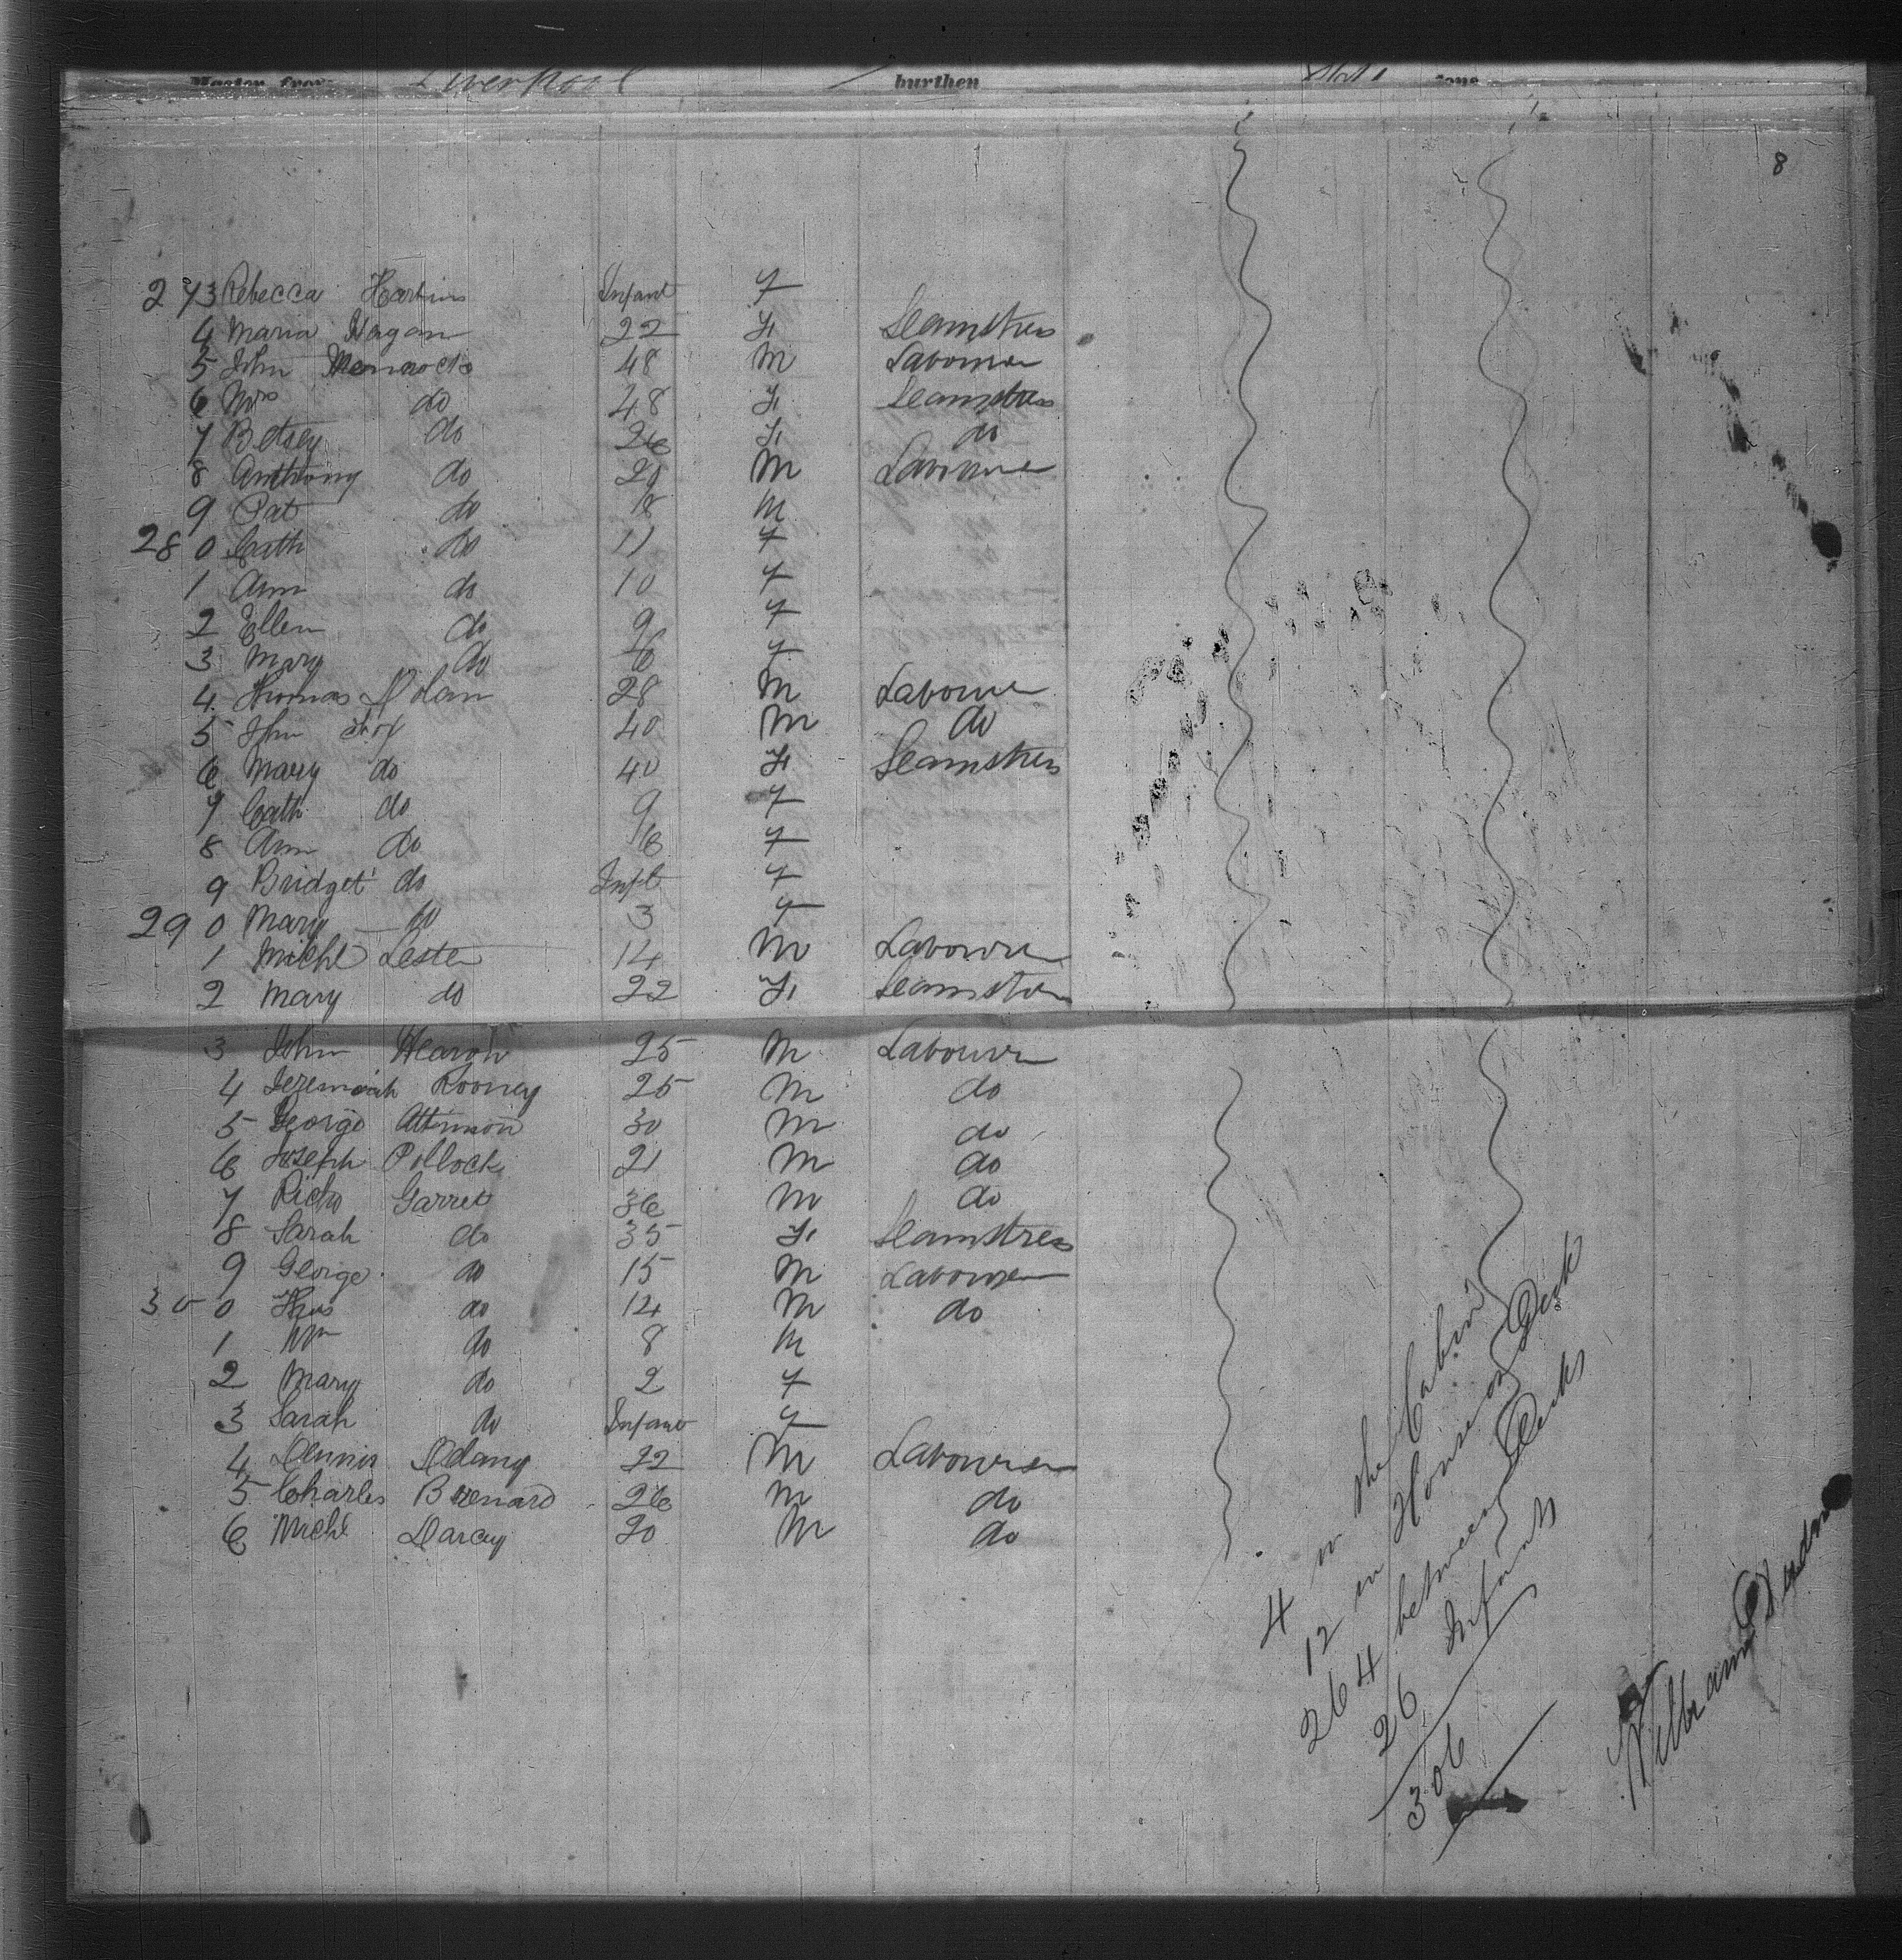 Master from Liverpool burthen tons
8
273 Rebecca Infant f
4 Maria Hagan 22 f Seamstress
5 John 48 M Labourer
6 Mrs do 48 f Seamstress
7 Betsey do 26 f do
8 Anthony do 20 M Labourer
9 Pat do 18 M
280 Cath do 11 f
1 Ann do 10 f
2 Ellen do 9 f
3 Mary do 6 f
4 Thomas Nolan 28 M Labourer
5 John 40 M do
6 Mary do 40 f Seamstress
7 Cath do 9 f
8 Ann do f
9 Bridget do Inft f
290 Mary do 3 f
1 Michl Lester 14 M Labourer
2 Mary do 22 f Seamstress
3 John Hearon 25 M Labourer
4 Jeremiah Rooney 25 M do
5 George 30 M do
6 Joseph Pollock 21 M do
7 Richd Garret 36 M do
8 Sarah do 35 f Seamstress
9 George do 15 M Labourer
300 Thos do 14 M do
1 Wm do 8 M
2 Mary do 2 f
3 Sarah do Infant f
4 Dennis 22 M Labourer
5 Charles Bernard 26 M do
6 Michl Darcy 20 M do
4 in the Cabin
12 in House on Deck
264 between Decks
26 Infants
306
William